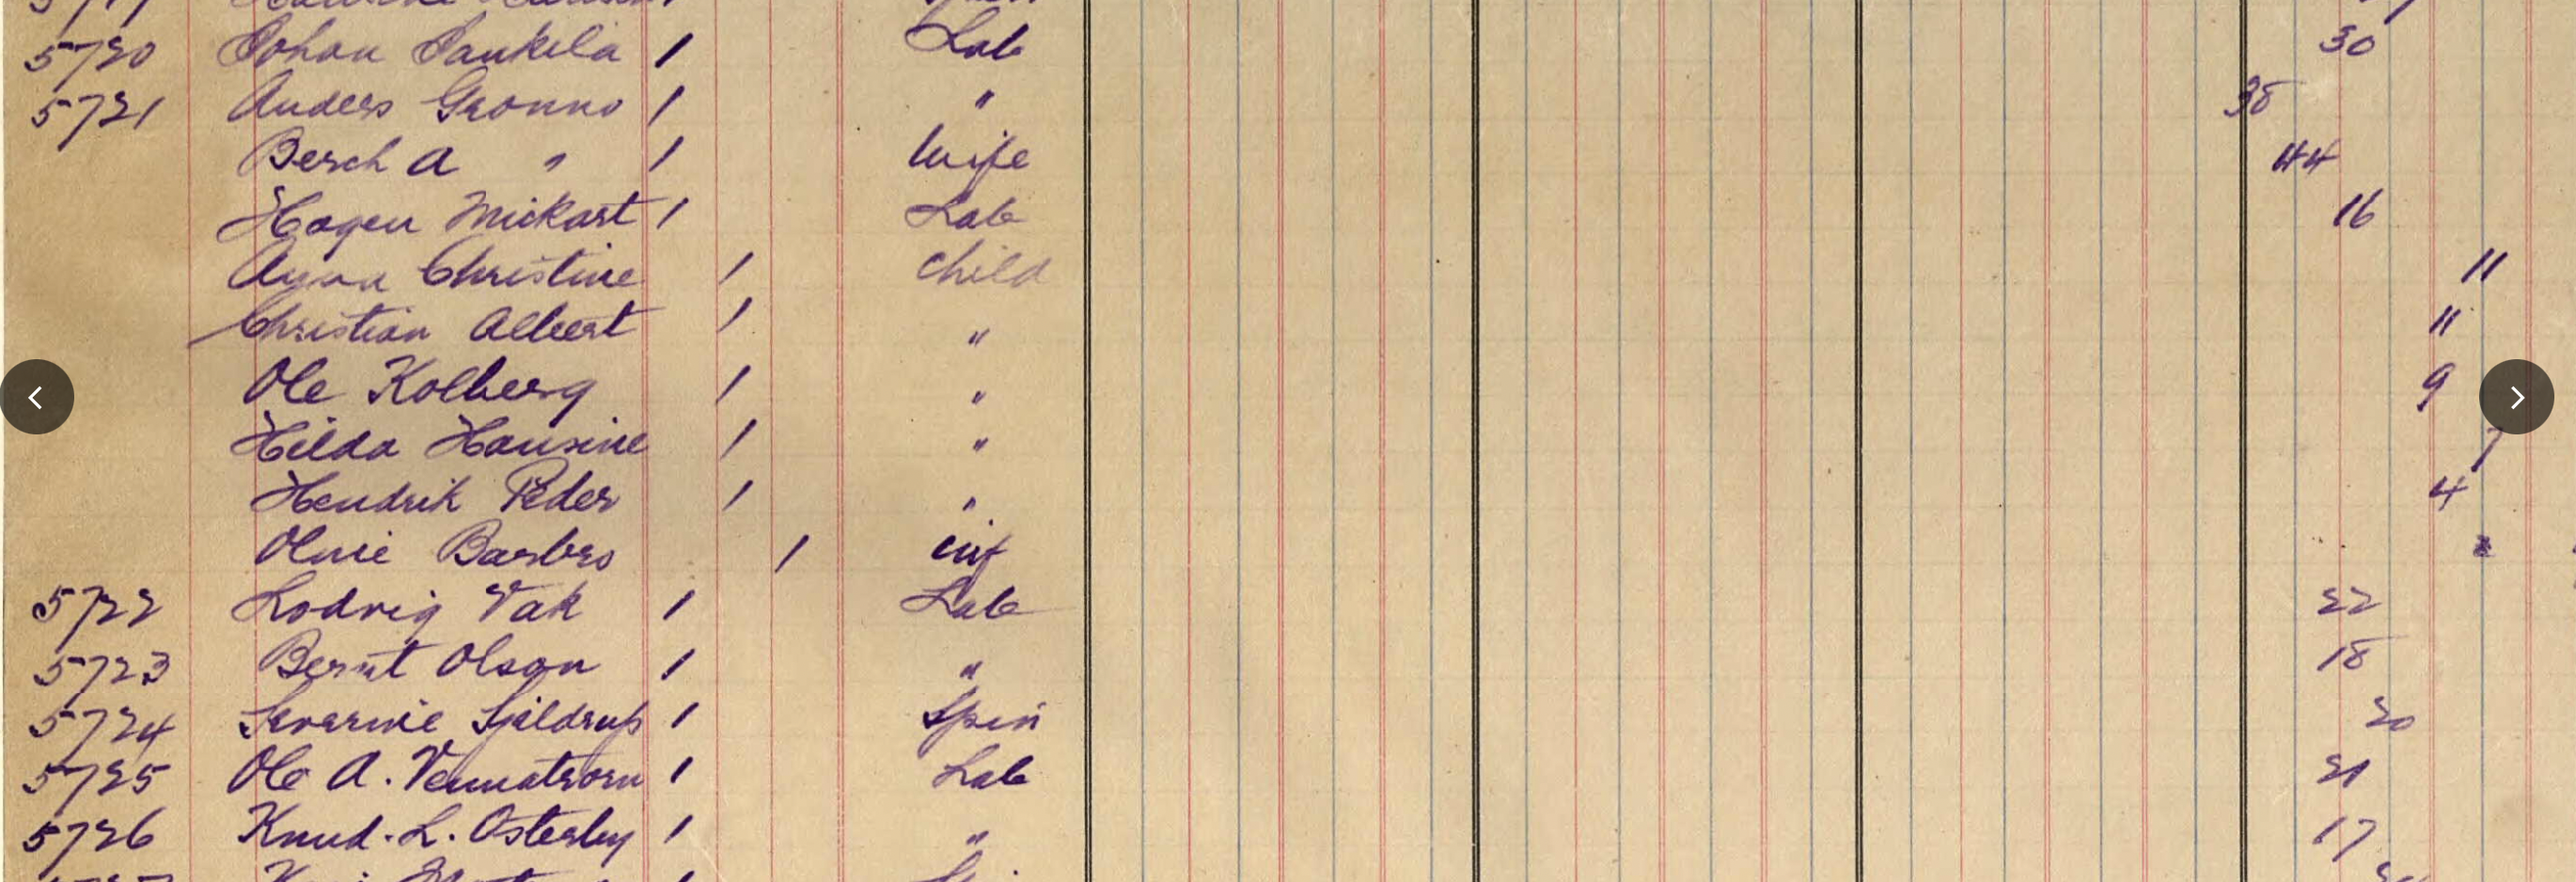 5720 Johan Saukila 1 Lab 30
5721 Anders Gronno 1 " 38
Berch A " 1 Wife 44
Hagen Mickart 1 Lab 16
Anna Christine 1 Child 11
Christian Albert 1 " 11
Ole Kolberg 1 " 9
Hilda Hansine 1 " 7
Hendrik Peder 1 " 4
Barbro 1 inf
5722 Lodvig Vak 1 Lab 22
5723 Bernt Olson 1 " 18
5724 Severine Sjeldrup 1 Spin 20
5725 Ole A. 1 Lab 21
5726 Knud. L. Osterby 1 " 17